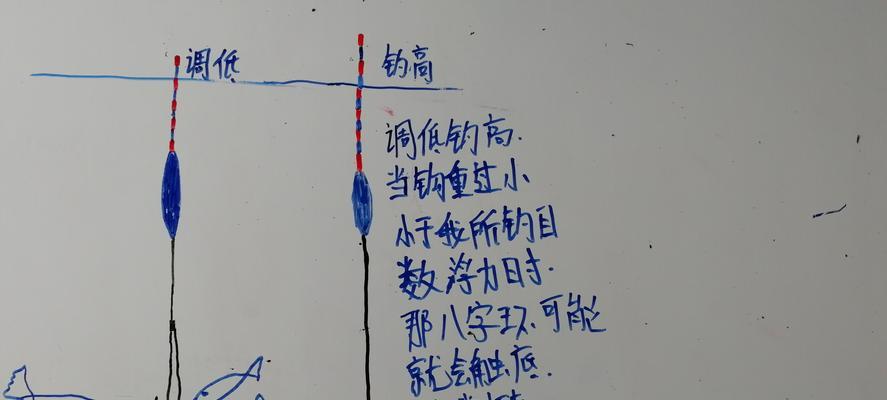 调低
钓高
调低钓高.
当钩重过小
小于我所钓目
数浮力时.
那八字环.可能
就会触底.